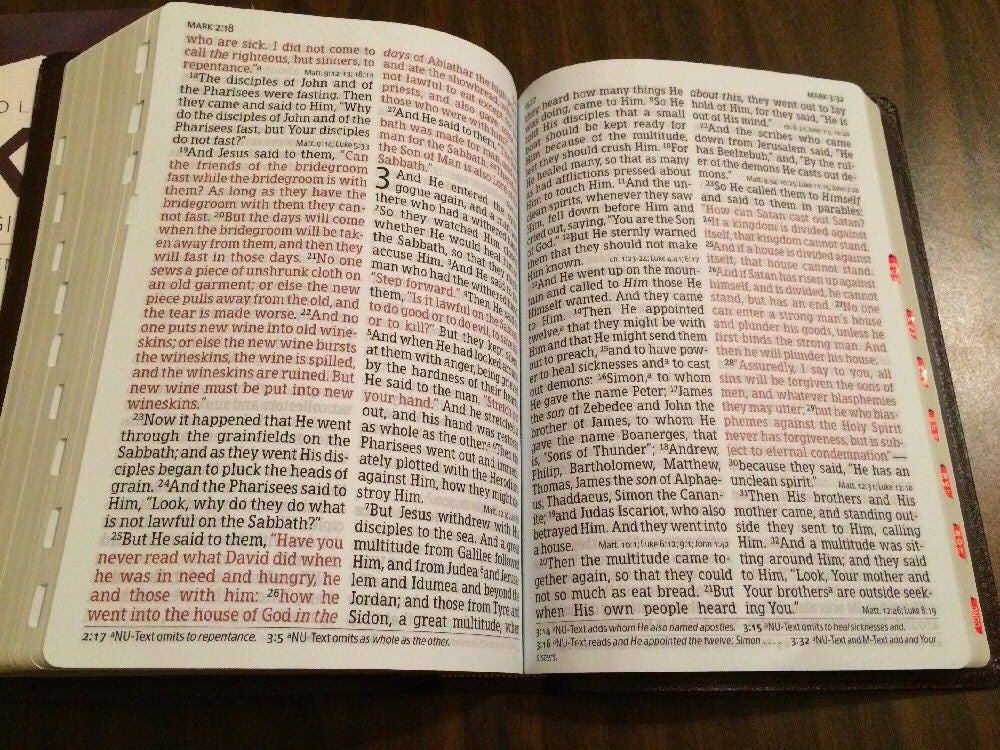 MARK 2:18
who are sick. I did not come to
call the righteous, but sinners, to
repentance."a
Matt. 9:12-13; 18:11
18The disciples of John and of
the Pharisees were fasting. Then
they came and said to Him, "Why
do the disciples of John and of the
Pharisees fast, but Your disciples
do not fast?"
Matt. 9:14; Luke 5:33
19And Jesus said to them, "Can
the friends of the bridegroom
fast while the bridegroom is with
them? As long as they have the
bridegroom with them they can-
not fast. 20But the days will come
when the bridegroom will be tak-
en away from them, and then they
will fast in those days. 21No one
sews a piece of unshrunk cloth on
an old garment; or else the new
piece pulls away from the old, and
the tear is made worse. 22And no
one puts new wine into old wine-
skins; or else the new wine bursts
the wineskins, the wine is spilled,
and the wineskins are ruined. But
new wine must be put into new
wineskins."
23Now it happened that He went
through the grainfields on the
Sabbath; and as they went His dis-
ciples began to pluck the heads of
grain. 24And the Pharisees said to
Him, "Look, why do they do what
is not lawful on the Sabbath?"
25But He said to them, "Have you
never read what David did when
he was in need and hungry, he
and those with him: 26how he
went into the house of God in the
days of Abiathar the high
and ate the showbread,
not lawful to eat except
priests, and also gave
those who were with him
27And He said to them, "The
bath was made for man,
man for the Sabbath. 28
the Son of Man is also Lord
Sabbath."
3 And He entered the
gogue again, and a
there who had a withered
2So they watched Him
whether He would heal
the Sabbath, so that they
accuse Him. 3And He said
man who had the withered
"Step forward." 4Then He said
them, "Is it lawful on the Sabbath
to do good or to do evil, to save
or to kill?" But they kept
5And when He had looked around
at them with anger, being grieved
by the hardness of their hearts
He said to the man, "Stretch out
your hand." And he stretched
out, and his hand was restored
as whole as the other.a 6Then the
Pharisees went out and immedi-
ately plotted with the Herodians
against Him, how they might de-
stroy Him.
7But Jesus withdrew with His
disciples to the sea. And a great
multitude from Galilee followed
Him, and from Judea 8and Jerusa-
lem and Idumea and beyond the
Jordan; and those from Tyre and
Sidon, a great multitude, when
2:17 aNU-Text omits to repentance. 3:5 aNU-Text omits as whole as the other.
MARK 3:32
they heard how many things He
was doing, came to Him. 9So He
told His disciples that a small
boat should be kept ready for
Him because of the multitude,
lest they should crush Him. 10For
He healed many, so that as many
as had afflictions pressed about
Him to touch Him. 11And the un-
clean spirits, whenever they saw
Him, fell down before Him and
cried out, saying, "You are the Son
of God." 12But He sternly warned
them that they should not make
Him known.
ch. 1:23-24; Luke 4:41; 6:17
13And He went up on the moun-
tain and called to Him those He
Himself wanted. And they came
to Him. 14Then He appointed
twelve,a that they might be with
Him and that He might send them
out to preach, 15and to have pow-
er to heal sicknesses anda to cast
out demons: 16Simon,a to whom
He gave the name Peter; 17James
the son of Zebedee and John the
brother of James, to whom He
gave the name Boanerges, that
is, "Sons of Thunder"; 18Andrew,
Philip, Bartholomew, Matthew,
Thomas, James the son of Alphae-
us, Thaddaeus, Simon the Canan-
ite; 19and Judas Iscariot, who also
betrayed Him. And they went into
a house.
Matt. 10:1; Luke 6:12; 9:1; John 1:42
20Then the multitude came to-
gether again, so that they could
not so much as eat bread. 21But
when His own people heard
about this, they went out to lay
hold of Him, for they said, "He is
out of His mind."
22And the scribes who came
down from Jerusalem said, "He
has Beelzebub," and, "By the rul-
er of the demons He casts out de-
mons."
23So He called them to Himself
and said to them in parables:
"How can Satan cast out Satan?
24If a kingdom is divided against
itself, that kingdom cannot stand.
25And if a house is divided against
itself, that house cannot stand.
26And if Satan has risen up against
himself, and is divided, he cannot
stand, but has an end. 27No one
can enter a strong man's house
and plunder his goods, unless he
first binds the strong man. And
then he will plunder his house.
28"Assuredly, I say to you, all
sins will be forgiven the sons of
men, and whatever blasphemies
they may utter; 29but he who blas-
phemes against the Holy Spirit
never has forgiveness, but is sub-
ject to eternal condemnation"—
30because they said, "He has an
unclean spirit."
Matt. 12:31; Luke 12:10
31Then His brothers and His
mother came, and standing out-
side they sent to Him, calling
Him. 32And a multitude was sit-
ting around Him; and they said
to Him, "Look, Your mother and
Your brothersa are outside seek-
ing You."
Matt. 12:46; Luke 8:19
3:14 aNU-Text adds whom He also named apostles. 3:15 aNU-Text omits to heal sicknesses and.
3:16 aNU-Text reads and He appointed the twelve: Simon . . . . 3:32 aNU-Text and M-Text add and Your
sisters.